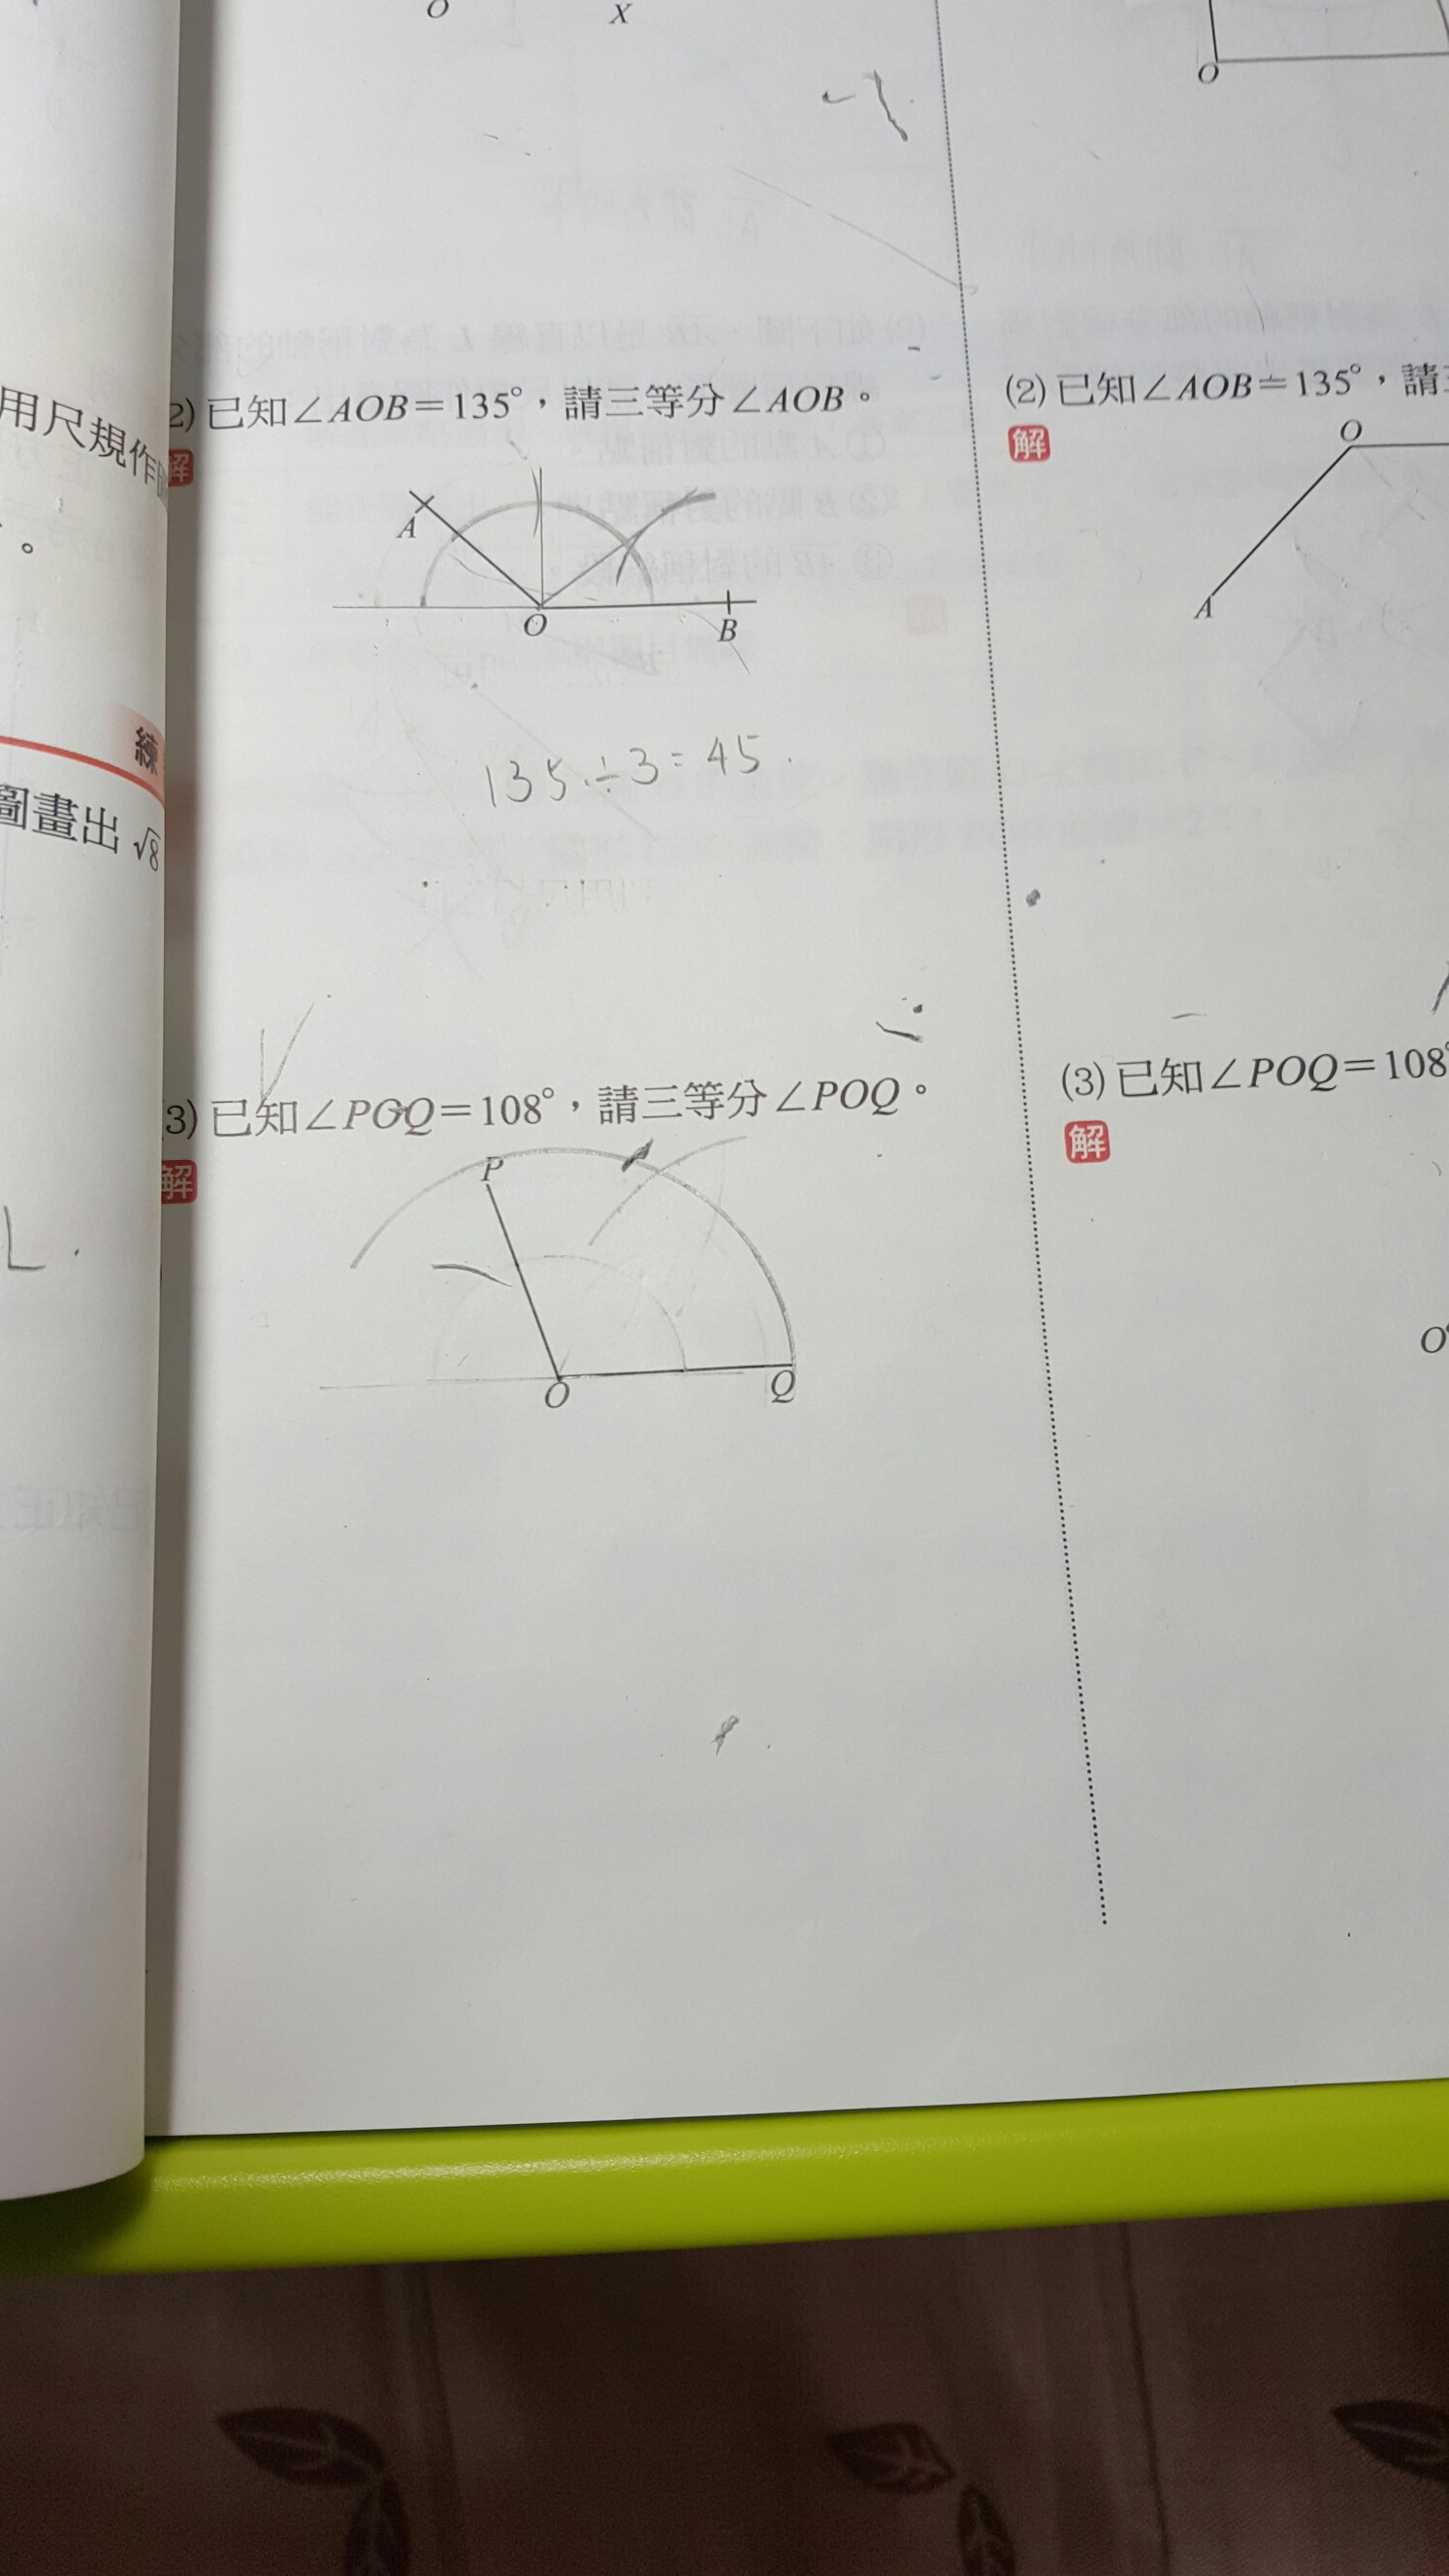 O X
O
用尺規作
。
(2) 已知∠AOB=135°，請三等分∠AOB。
解
A
O
B
135÷3=45
練
圖畫出 √8
(3) 已知∠POQ=108°，請三等分∠POQ。
解
P
O
Q
L.
(2) 已知∠AOB=135°，請
解
O
A
(3) 已知∠POQ=108°
解
O